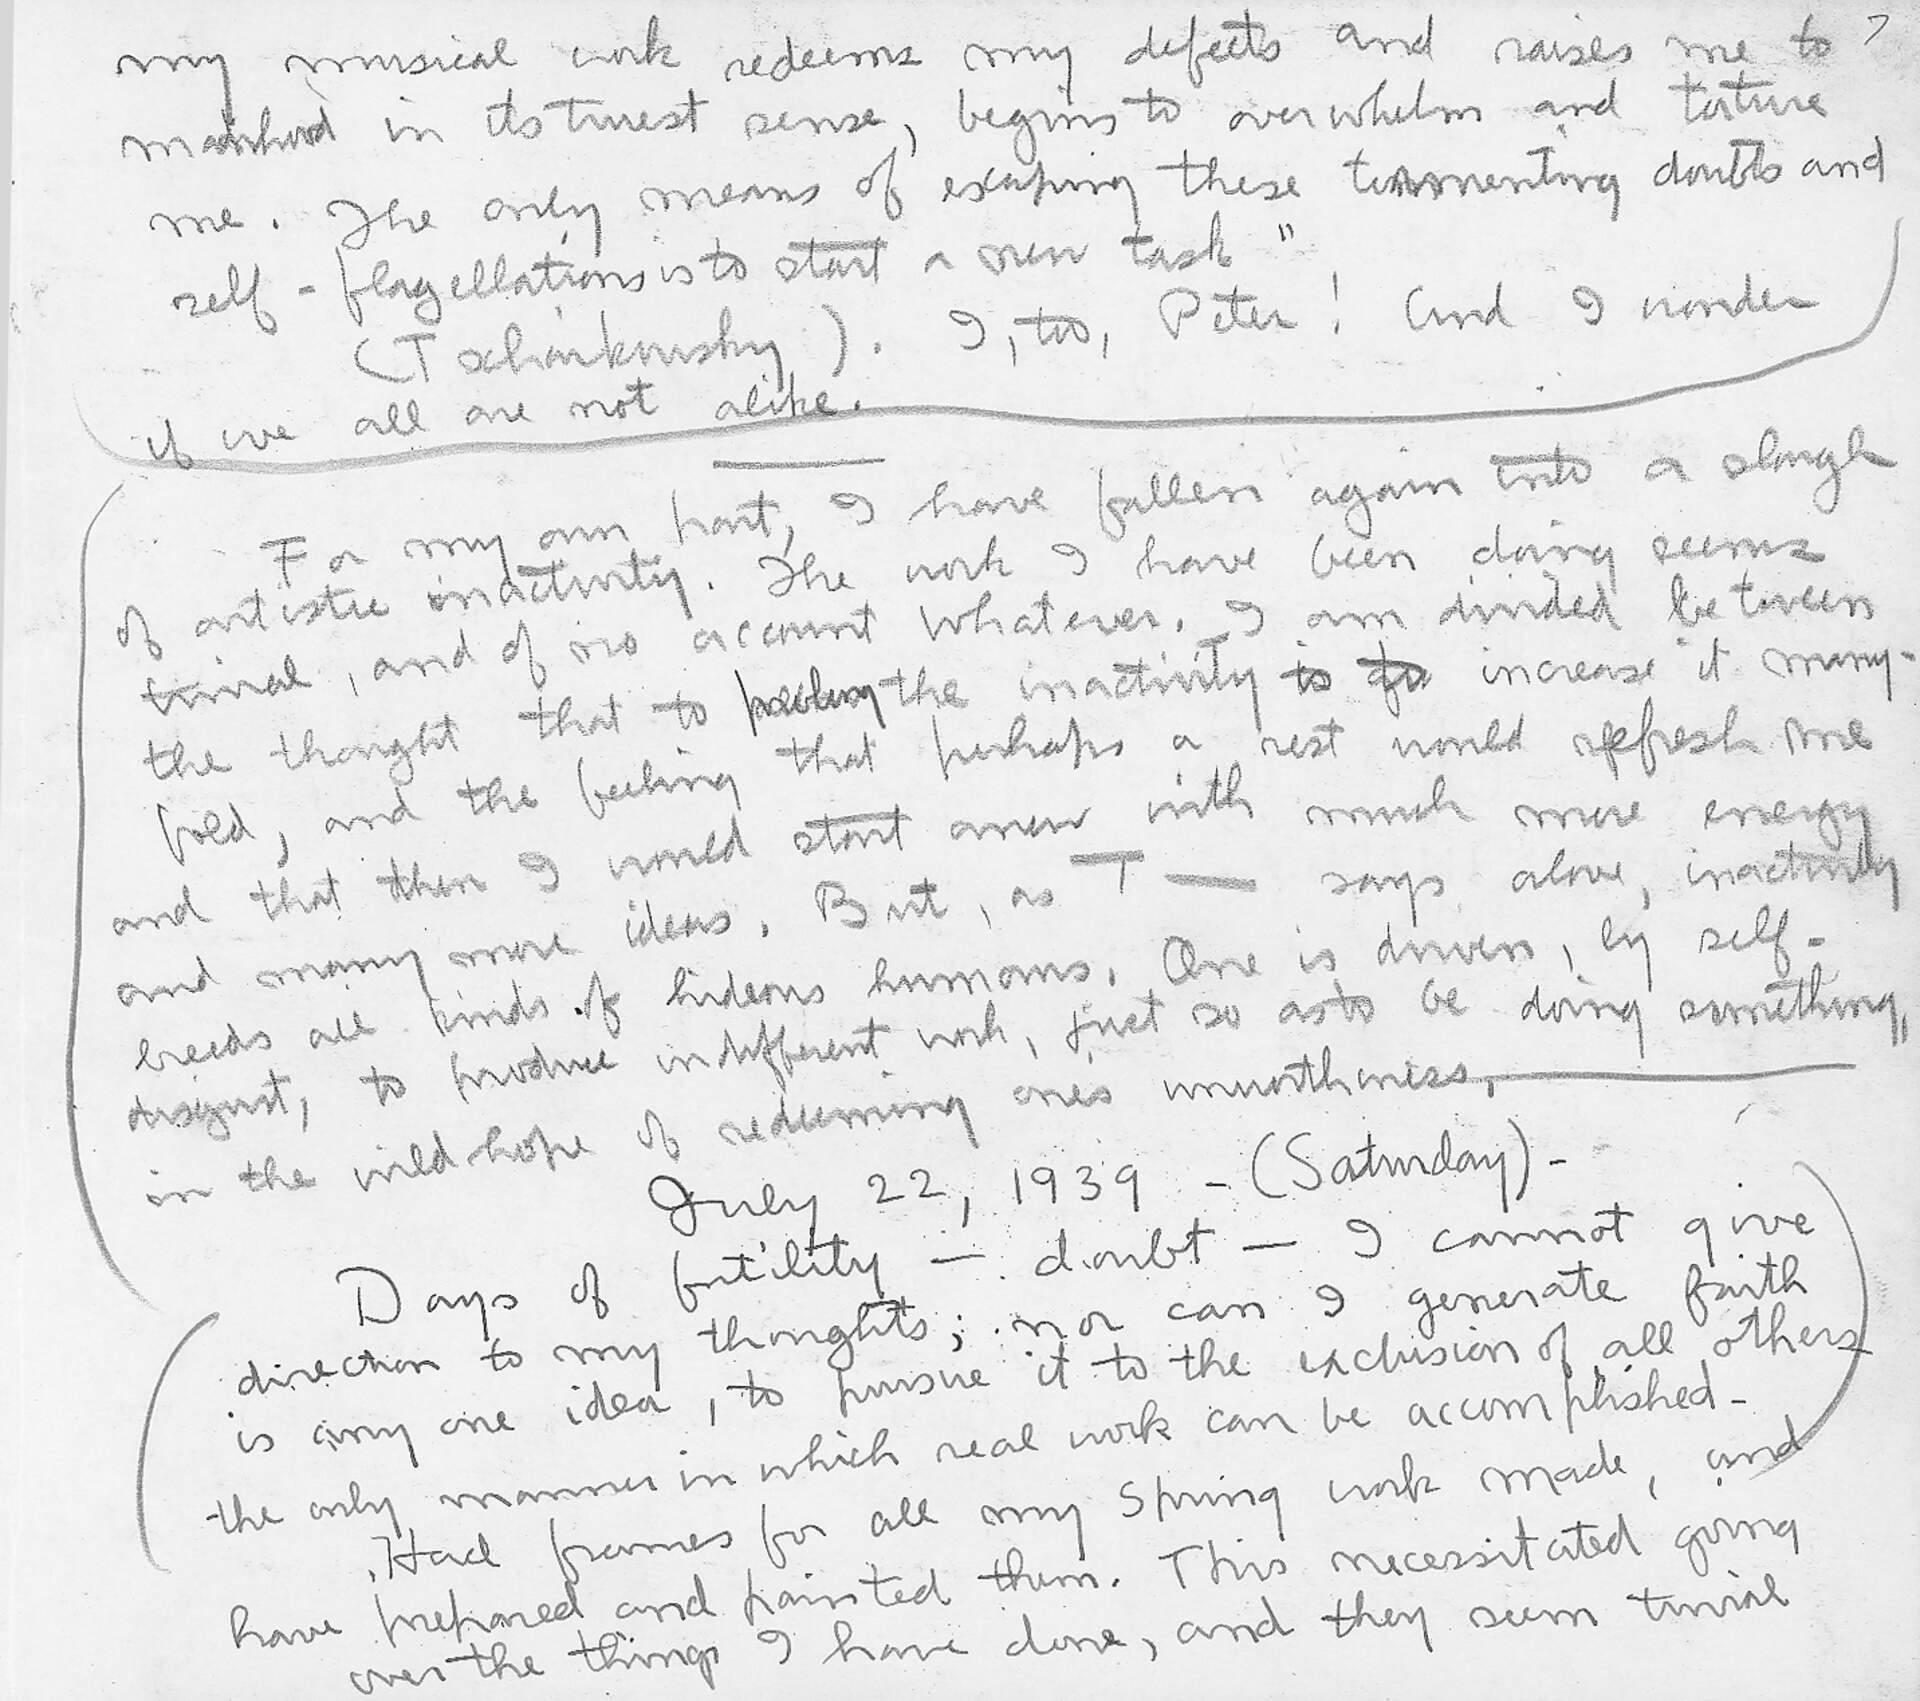 my musical work redeems my defects and raises me to
manhood in its truest sense, begins to overwhelm and torture
me. The only means of escaping these tormenting doubts and
self-flagellations is to start a new task"
(Tschaikowsky). I, too, Peter! And I wonder
if we all are not alike.
For my own part, I have fallen again into a slough
of artistic inactivity. The work I have been doing seems
trivial, and of no account whatever. I am divided between
the thought that to prolong the inactivity is to increase it many-
fold, and the feeling that perhaps a rest would refresh me
and that then I would start anew with much more energy
and many more ideas. But, as T— says above, inactivity
breeds all kinds of hideous humours. One is driven, by self-
disgust, to produce indifferent work, just so as to be doing something,
in the wild hope of redeeming one's unworthiness.
July 22, 1939 - (Saturday) -
Days of futility — doubt — I cannot give
direction to my thoughts; nor can I generate faith
is any one idea, to pursue it to the exclusion of all others
the only manner in which real work can be accomplished -
Had frames for all my Spring work made, and
have prepared and painted them. This necessitated going
over the things I have done, and they seem trivial